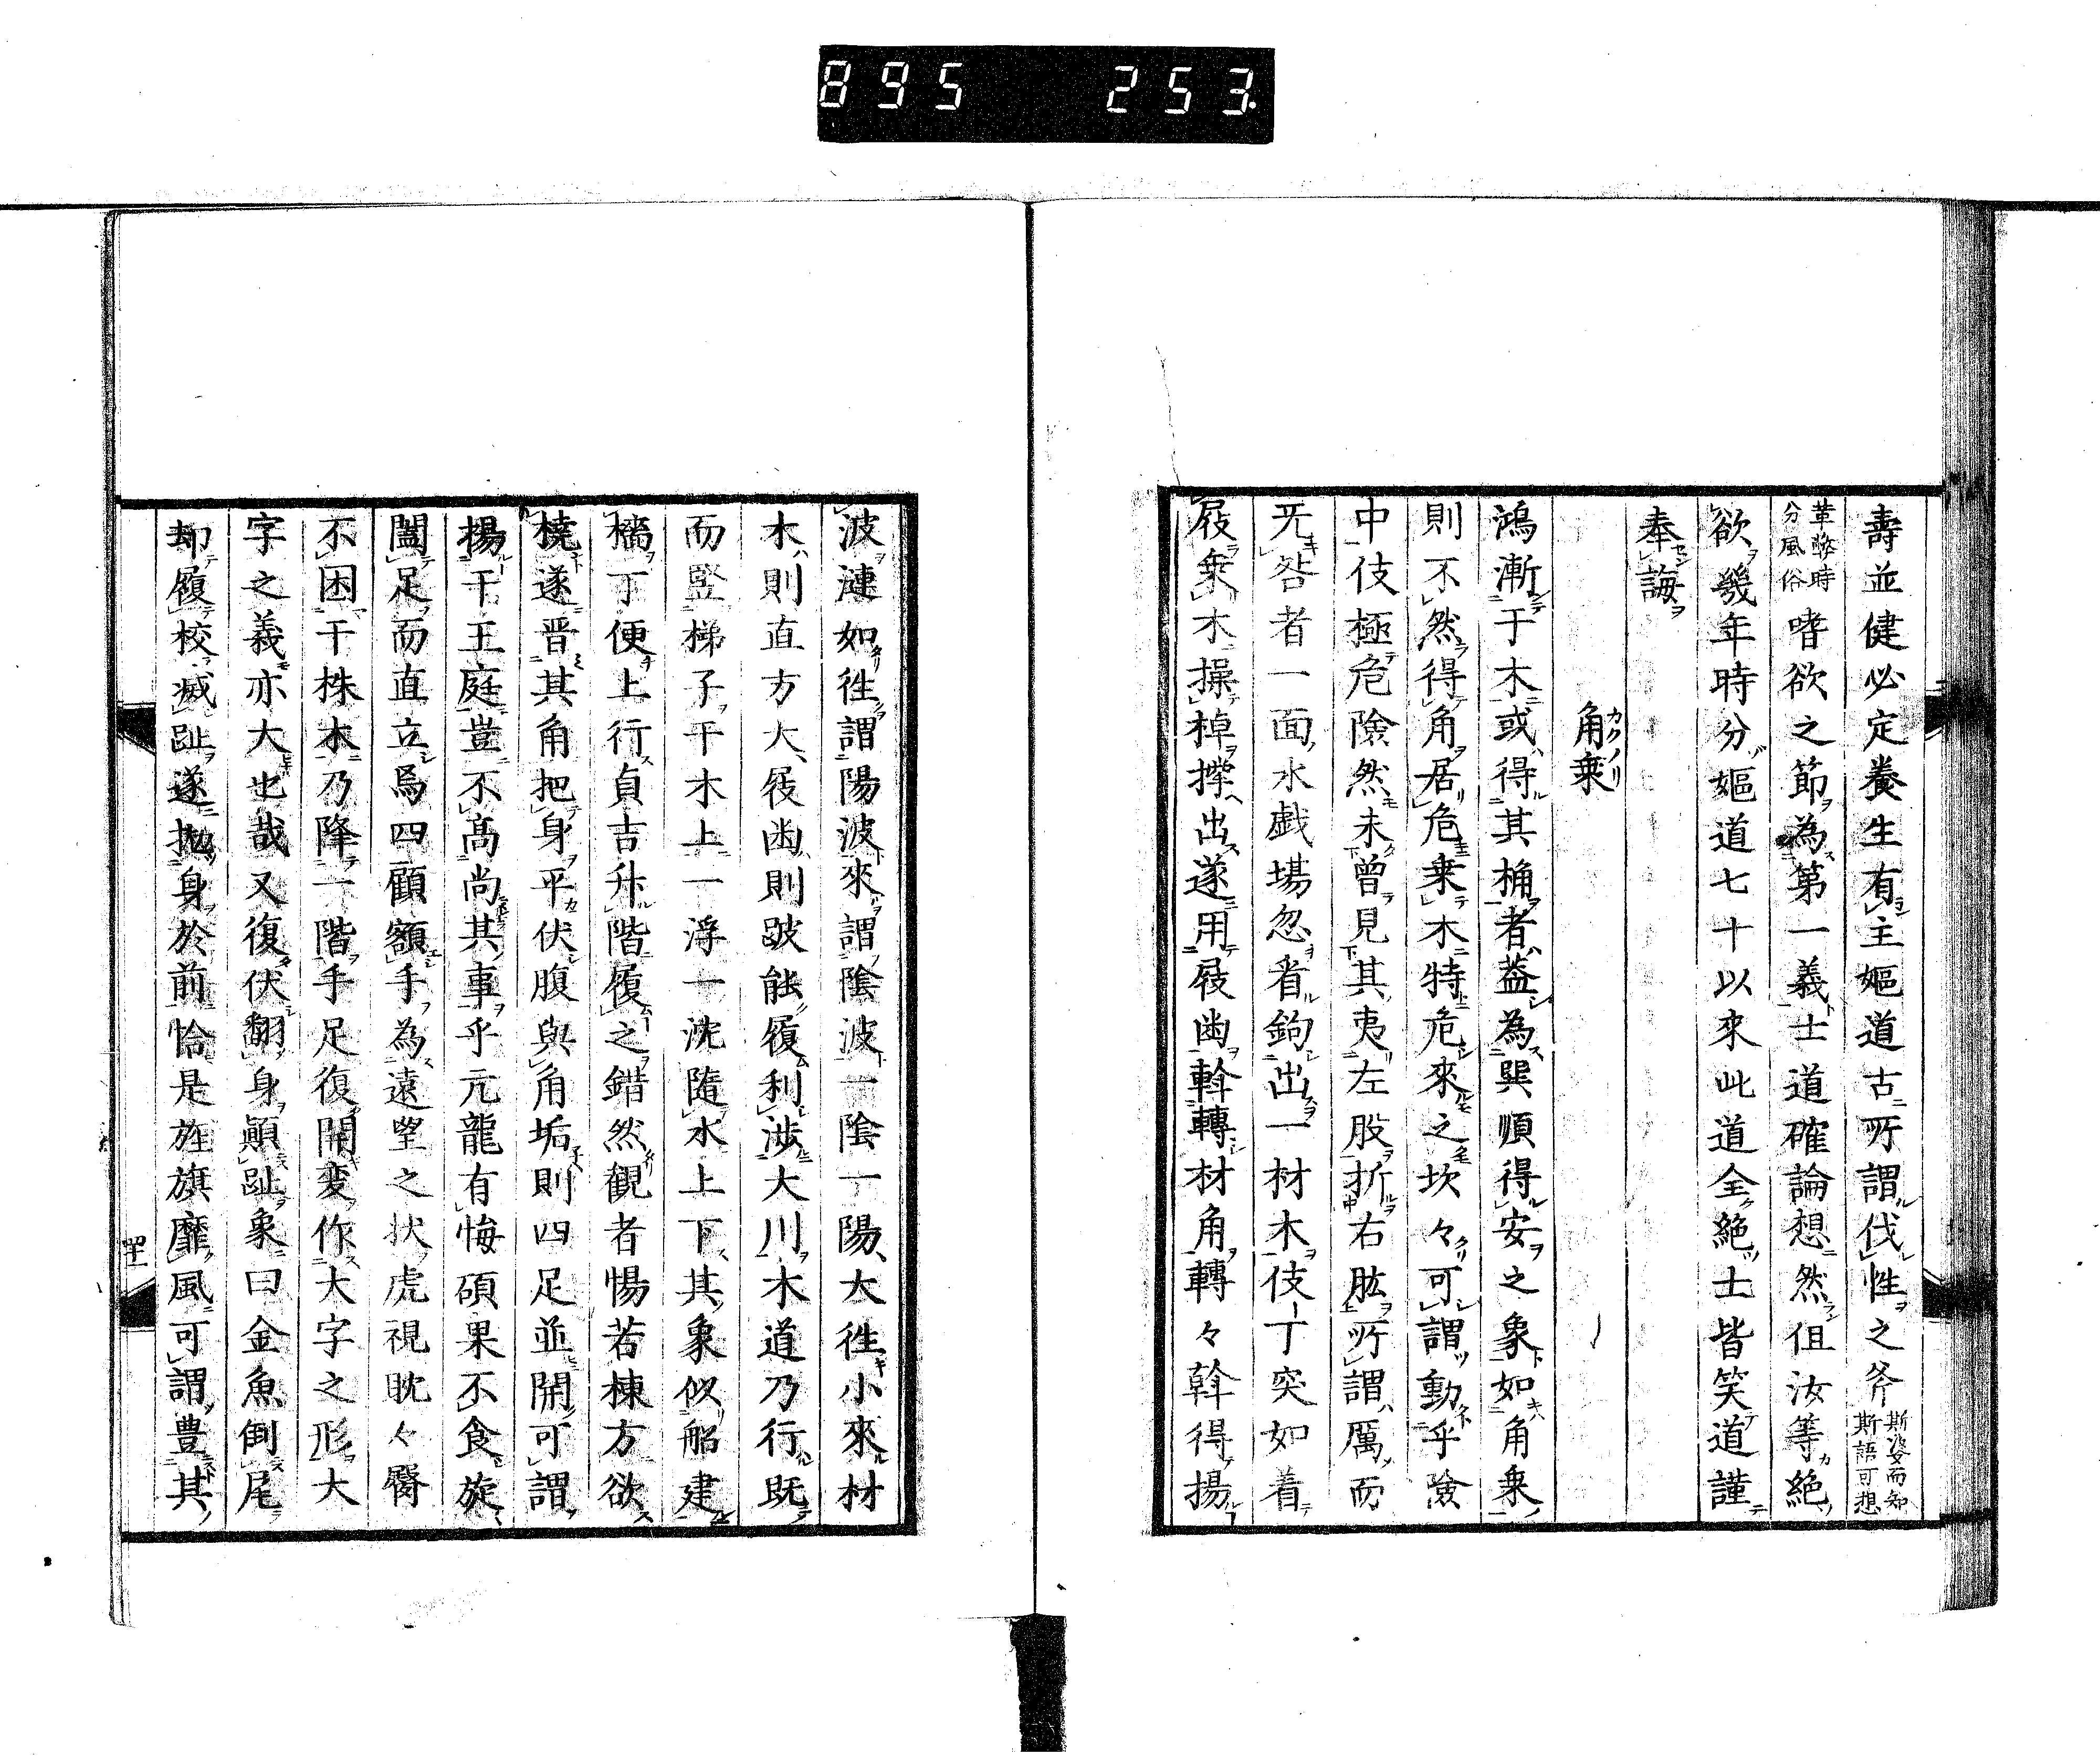 895 253
壽並健必定養生有主嫗道古所謂伐性之斧斯婆而知斯語可想
革弊時分風俗嗜欲之節為第一義士道確論想然伹汝等絶
欲幾年時分嫗道七十以來此道全絶士皆笑道謹
奉誨
角乗
鴻漸于木或得其桷者葢為巽順得安之象如角乗
則不然得角居危乗木特危來之坎々可謂動乎險
中伎極危險然未曾見其夷左股折右肱所謂厲而
无咎者一面水戯場忽省鉤出一材木伎丁突如着
屐乗木操棹擛出遂用屐歯斡轉材角轉々斡得揚
波漣如徃謂陽波來謂陰波一陰一陽大徃小來材
木則直方大屐歯則跛能履利渉大川木道乃行既
而竪梯子平木上一浮一沈隨水上下其象似船建
檣丁便上行貞吉升階履之錯然観者惕若棟方欲
橈遂晋其角把身平伏腹與角垢則四足並開可謂
揚于王庭豈不髙尚其事乎亢龍有悔碩果不食旋
闔足而直立焉四顧額手為遠望之状虎視眈々臀
不困于株木乃降一階手足復開変作大字之形大
字之義亦大也哉又復伏翻身顚趾象曰金魚倒尾
却履校滅趾遂抛身於前恰是旌旗靡風可謂豊其